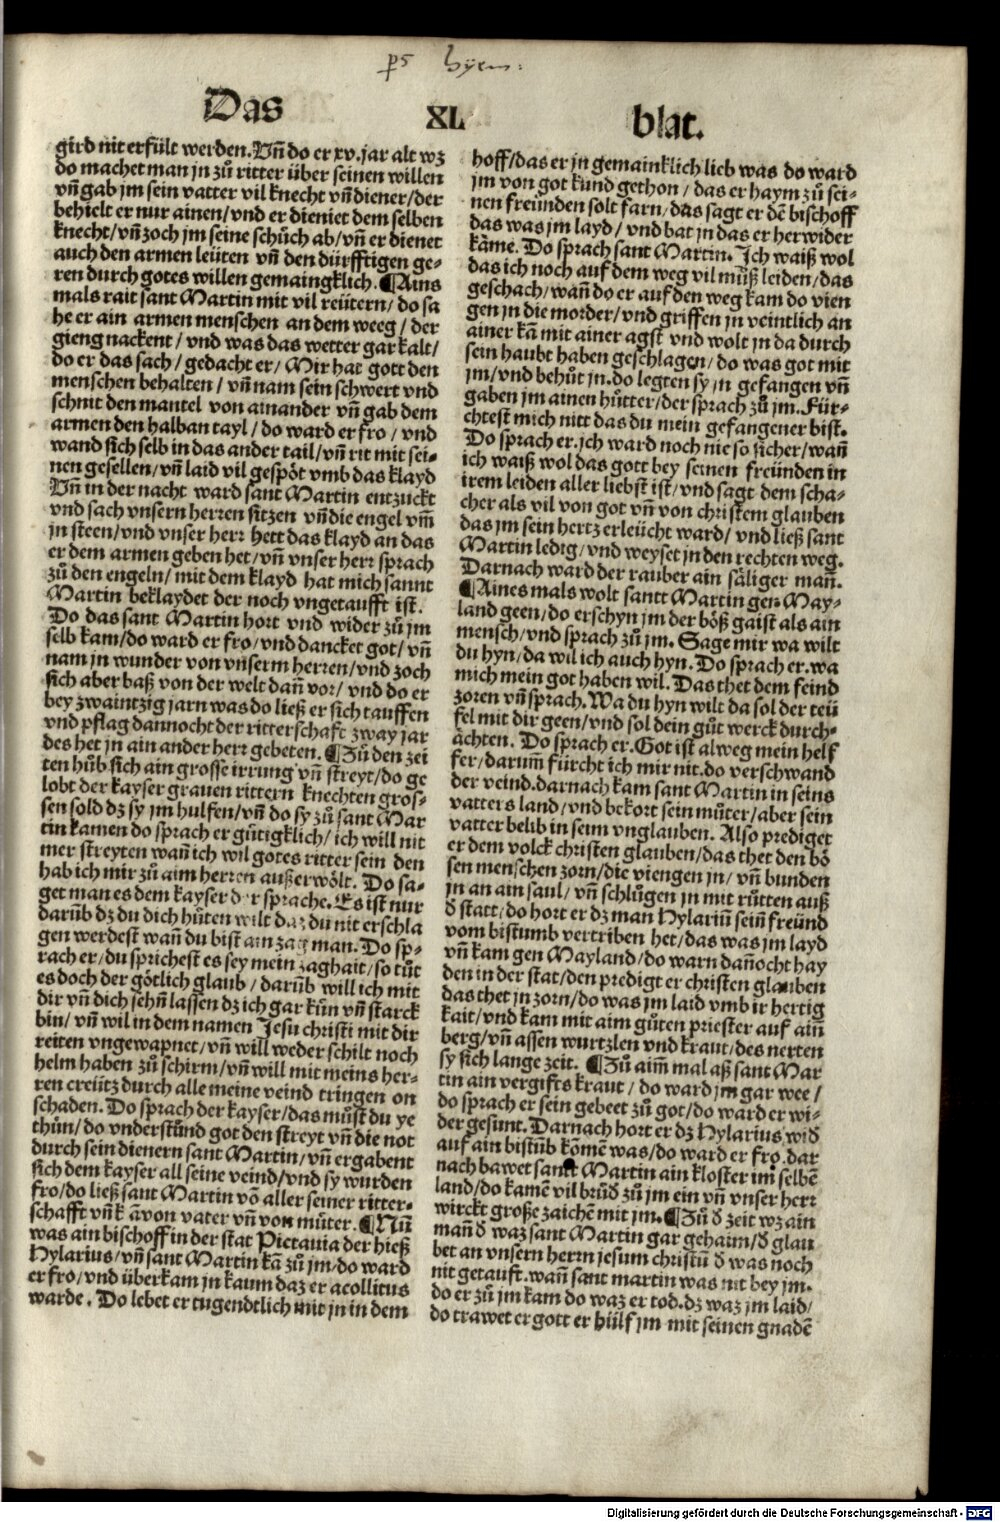 Das XL blat.
gird nit erfült werden. Vñ do er xv. jar alt wz
do machet man jn zů ritter über seinen willen
vñ gab jm sein vatter vil knecht vñ diener/der
behielt er nur ainen/vnd er dieniet dem selben
knecht/vñ zoch jm seine schůch ab/vñ er dienet
auch den armen leüten vñ den dürfftigen ge-
ren durch gotes willen gemaingklich. ¶Ains
mals rait sant Martin mit vil reütern/do sa
he er ain armen menschen an dem weeg/der
gieng nackent/vnd was das wetter gar kalt/
do er das sach/gedacht er/Mir hat gott den
menschen behalten/vñ nam sein schwert vnd
schnit den mantel von ainander vñ gab dem
armen den halban tayl/do ward er fro/vnd
wand sich selb in das ander tail/vñ rit mit sei-
nen gesellen/vñ laid vil gespöt vmb das klayd
Vñ in der nacht ward sant Martin entzuckt
vnd sach vnsern herren sitzen vñ die engel vm̃
jn steen/vnd vnser herr hett das klayd an das
er dem armen geben het/vñ vnser herr sprach
zů den engeln/mit dem klayd hat mich sannt
Martin beklaydet der noch vngetaufft ist.
Do das sant Martin hort vnd wider zů jm
selb kam/do ward er fro/vnd dancket got/vñ
nam jn wunder von vnserm herren/vnd zoch
sich aber baß von der welt dañ vor/vnd do er
bey zwaintzig jarn was do ließ er sich tauffen
vnd pflag dannocht der ritterschafft zway jar
des het jn ain ander herr gebeten. ¶Zů den zei
ten hůb sich ain grosse irrung vñ streyt/do ge
lobt der kayser grauen rittern knechten gros-
sen sold dz sy jm hulfen/vñ do sy zů sant Mar
tin kamen do sprach er gůtigklich/ich will nit
mer streyten wañ ich wil gotes ritter sein den
hab ich mir zů aim herren außerwölt. Do sa-
get man es dem kayser der sprache. Es ist nur
darũb dz du dich hůten wilt daz du nit erschla
gen werdest wañ du bist ain zag man. Do sp-
rach er/du sprichest es sey mein zaghait/so tůt
es doch der götlich glaub/darũb will ich mit
dir vñ dich sehñ lassen dz ich gar kün vñ starck
bin/vñ wil in dem namen Jesu christi mit dir
reiten vngewapnet/vñ will weder schilt noch
helm haben zů schirm/vñ will mit meins her-
ren creütz durch alle meine veind tringen on
schaden. Do sprach der kayser/das můst du ye
thůn/do vnderstůnd got den streyt vñ die not
durch sein dienern sant Martin/vñ ergabent
sich dem kayser all seine veind/vnd sy wurden
fro/do ließ sant Martin võ aller seiner ritter-
schafft vñ k ãvon vater vñ von můter. ¶Nũ
was ain bischoff in der stat Pictauia der hieß
Hylarius/vñ sant Martin kã zů jm/do ward
er fro/vnd überkam jn kaum daz er acollitus
warde. Do lebet er tugendtlich mit jn in dem
hoff/das er jn gemainklich lieb was do ward
jm von got kund gethon/das er haym zů sei-
nen freünden solt farn/das sagt er dẽ bischoff
das was jm layd/vnd bat jn das er herwider
käme. Do sprach sant Martin. Ich waiß wol
das ich noch auf dem weg vil můß leiden/das
geschach/wañ do er auf den weg kam do vien
gen jn die morder/vnd griffen jn veintlich an
ainer kã mit ainer agst vnd wolt jn da durch
sein haubt haben geschlagen/do was got mit
jm/vnd behůt jn. do legten sy jn gefangen vñ
gaben jm ainen hůtter/der sprach zů jm. Für-
chtest mich nitt das du mein gefangener bist.
Do sprach er. ich ward noch nie so sicher/wañ
ich waiß wol das gott bey seinen freünden in
irem leiden aller liebst ist/vnd sagt dem scha-
cher als vil von got vñ von christem glauben
das jm sein hertz erleücht ward/vnd ließ sant
Martin ledig/vnd weyset jn den rechten weg.
Darnach ward der rauber ain säliger mañ.
¶Aines mals wolt santt Martin gen May-
land geen/do erschyn jm der böß gaist als ain
mensch/vnd sprach zů jm. Sage mir wa wilt
du hyn/da wil ich auch hyn. Do sprach er. wa
mich mein got haben wil. Das thet dem feind
zoren vñ sprach. Wa du hyn wilt da sol der teü
fel mit dir geen/vnd sol dein gůt werck durch-
ächten. Do sprach er. Got ist alweg mein helf
fer/darum̃ fürcht ich mir nit. do verschwand
der veind. darnach kam sant Martin in seins
vatters land/vnd bekort sein můter/aber sein
vatter belib in seim vnglauben. Also prediget
er dem volck christen glauben/das thet den bö
sen menschen zorn/die viengen jn/vñ bunden
jn an ain saul/vñ schlůgen jn mit růtten auß
d̕ statt/do hort er dz man Hylariũ seiñ freünd
vom bistumb vertriben het/das was jm layd
vñ kam gen Mayland/do warn dañocht hay
den in der stat/den predigt er christen glauben
das thet jn zorn/do was jm laid vmb ir hertig
kait/vnd kam mit aim gůten priester auf ain
berg/vñ assen wurtzlen vnd kraut/des nerten
sy sich lange zeit. ¶Zů aim̃ mal aß sant Mar
tin ain vergifts kraut/do ward jm gar wee/
do sprach er sein gebeet zů got/do ward er wi-
der gesunt. Darnach hort er dz Hylarius wid̕
auf ain bistũb kõmẽ was/do ward er fro. dar
nach bawet sant Martin ain kloster im selbẽ
land/do kamẽ vil brůd̕ zů jm ein vñ vnser herr
wirckt große zaichẽ mit jm. ¶Zů d̕ zeit wz ain
mañ d̕ waz sant Martin gar gehaim/d̕ glau
bet an vnsern herrn jesum christũ d̕ was noch
nit getauft. wañ sant martin was nit bey jm.
do er zů jm kam do waz er tod. dz waz jm laid/
do trawet er gott er hülf jm mit seinen gnadẽ
Digitalisierung gefördert durch die Deutsche Forschungsgemeinschaft - DFG